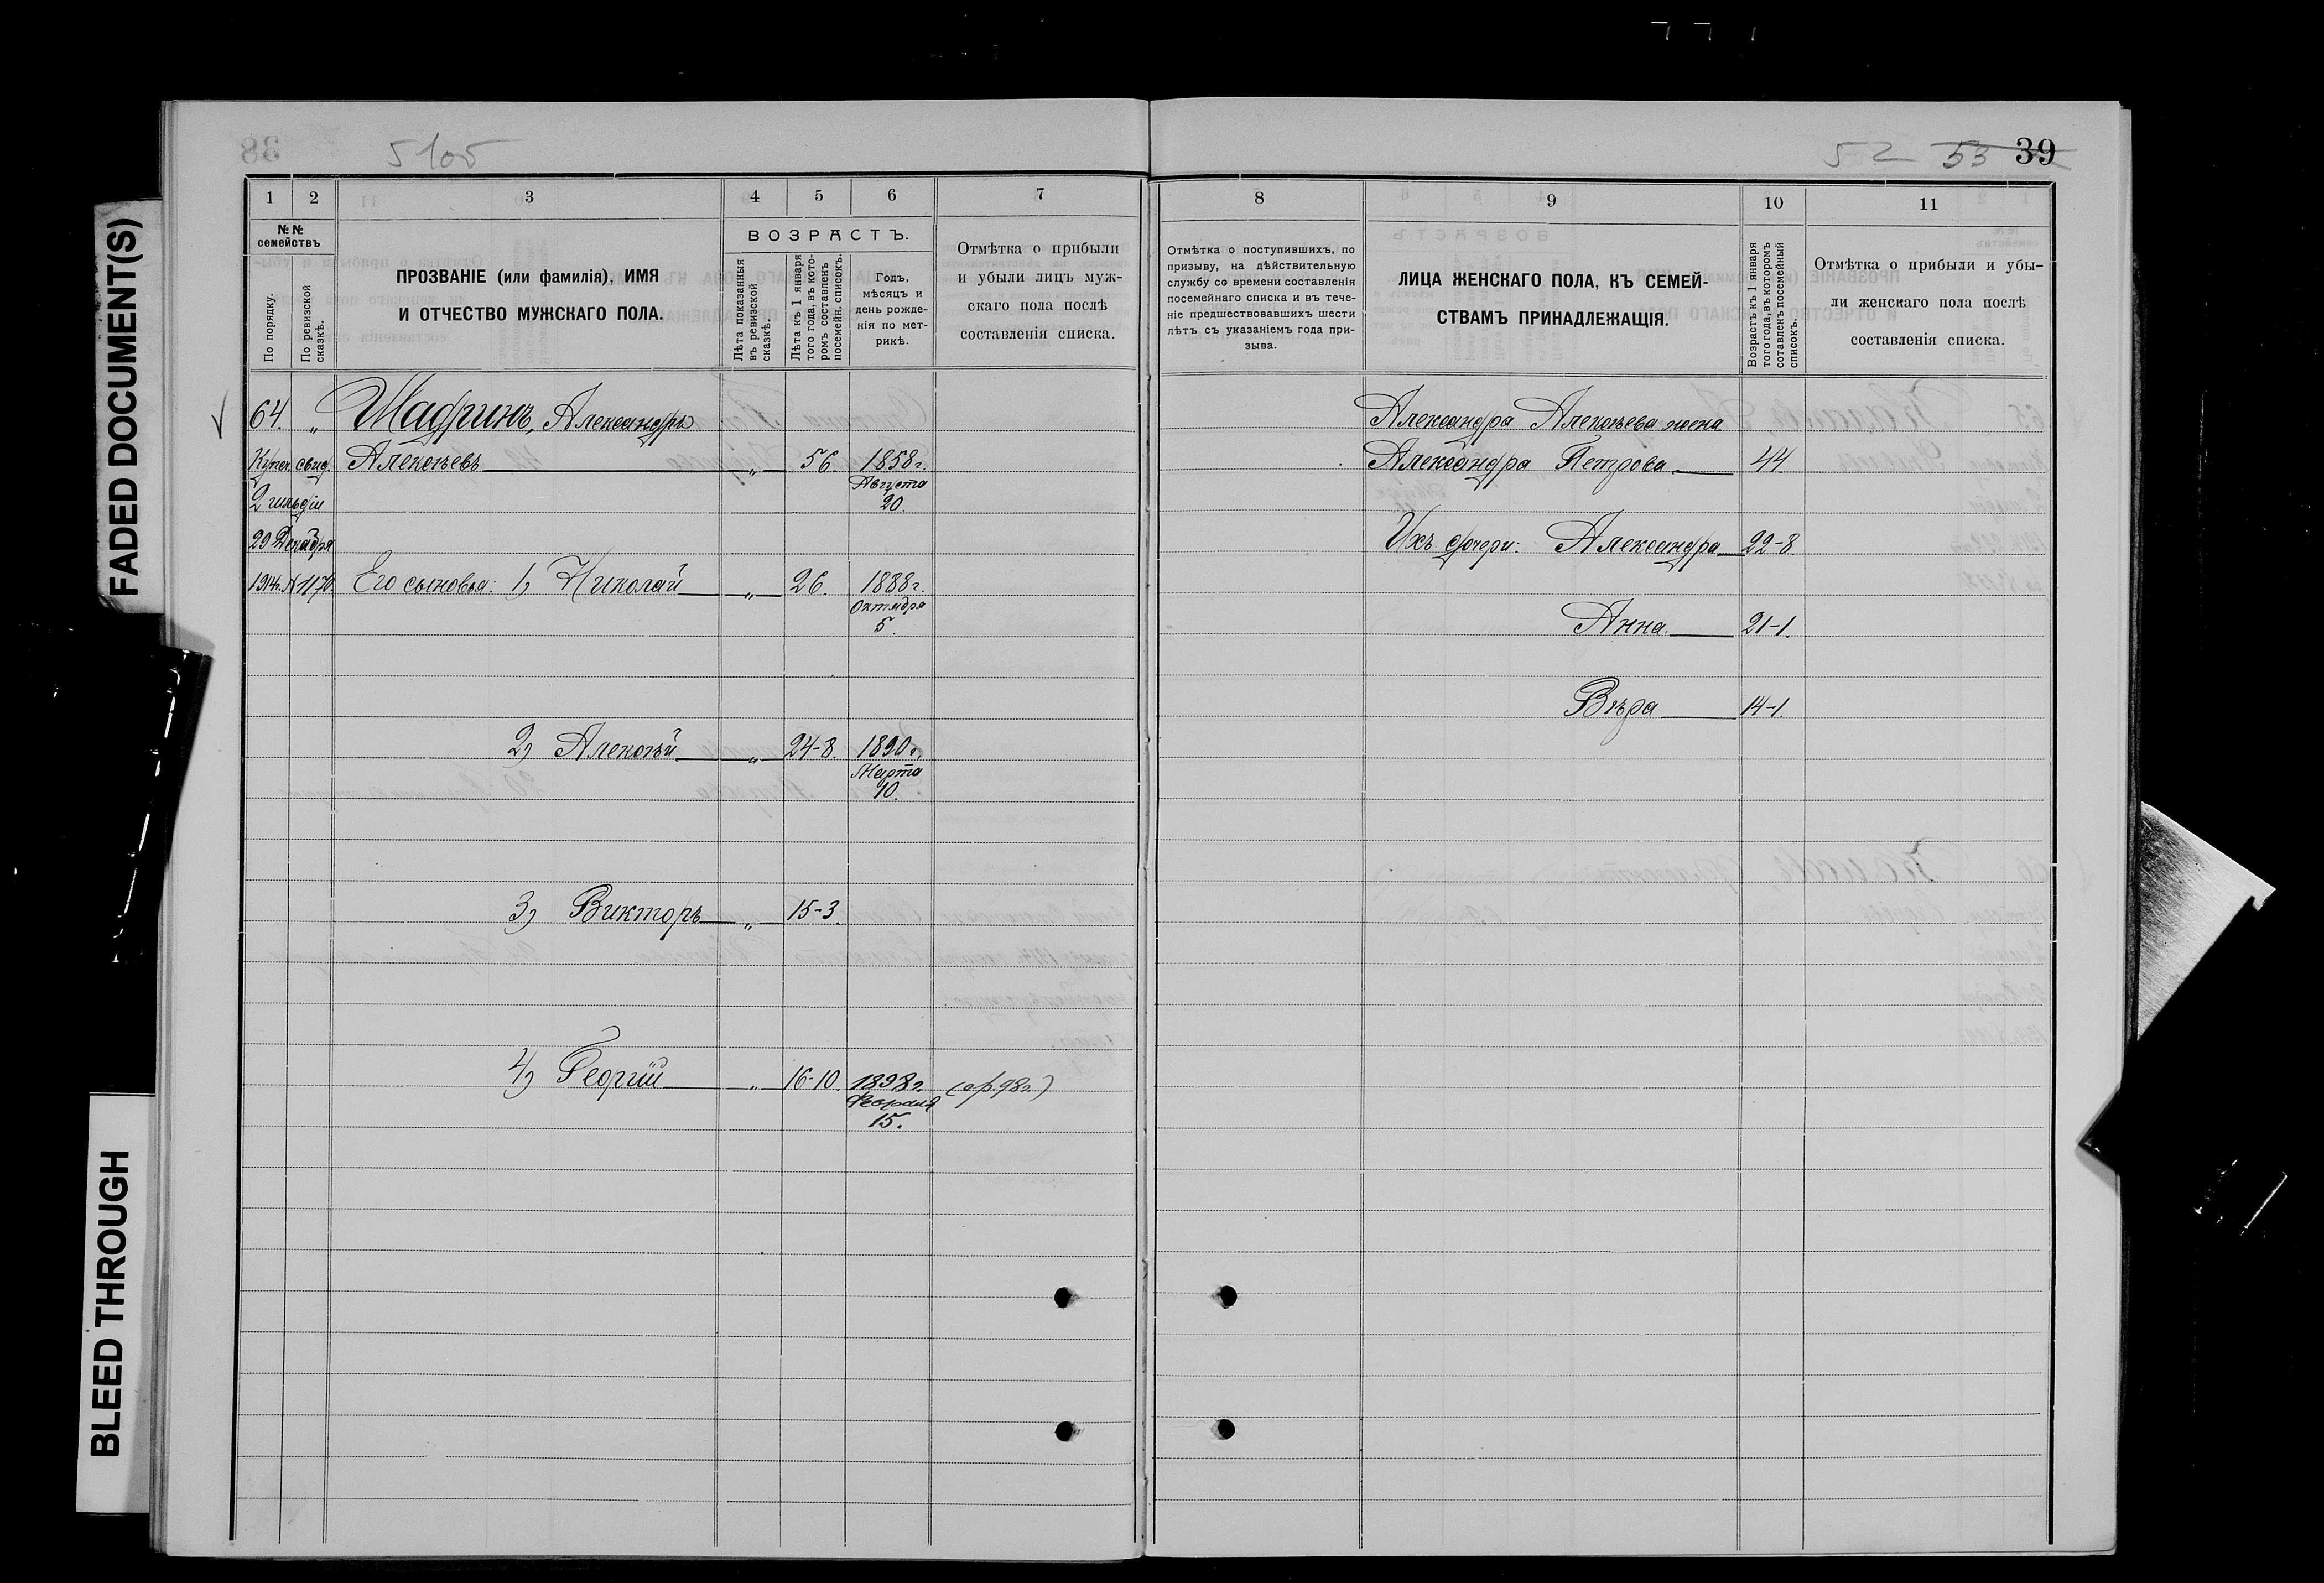 FADED DOCUMENT(S)
BLEED THROUGH
38
5105
1 2 3 4 5 6 7
№№ семействъ
По порядку.
По ревизской сказкѣ.
ПРОЗВАНІЕ (или фамилія), ИМЯ
И ОТЧЕСТВО МУЖСКАГО ПОЛА.
ВОЗРАСТЪ.
Лѣта показанныя въ ревизской сказкѣ.
Лѣта къ 1 января того года, въ кото-ромъ составленъ посемейн. списокъ.
Годъ,
мѣсяцъ и
день рожде-
нія по мет-
рикѣ.
Отмѣтка о прибыли
и убыли лицъ муж-
скаго пола послѣ
составленія списка.
64. „ Шадринъ, Александръ
Купеч. свид. Алексѣевъ „ 56 1858г.
Августа
2 гильдіи 20.
29 Декабря
1914г. № 1170. Его сыновья: 1) Николай „ 26. 1888г.
Октября
5.
2) Алексѣй „ 24-8. 1890г.
Марта
10.
3) Викторъ „ 15-3.
4) Георгій „ 16-10. 1898г. (ор. 98г.)
Февраля
15.
52 53 39
8 9 10 11
Отмѣтка о поступившихъ, по
призыву, на дѣйствительную
службу со времени составленія
посемейнаго списка и въ тече-
ніе предшествовавшихъ шести
лѣтъ съ указаніемъ года при-
зыва.
ЛИЦА ЖЕНСКАГО ПОЛА, КЪ СЕМЕЙ-
СТВАМЪ ПРИНАДЛЕЖАЩІЯ.
Возрастъ къ 1 января того года, въ которомъ сотавленъ посемейный списокъ.
Отмѣтка о прибыли и убы-
ли женскаго пола послѣ
составленія списка.
Александра Алексѣева жена
Александра Петрова 44
Ихъ дочери: Александра 22-8.
Анна 21-1.
Вѣра 14-1.